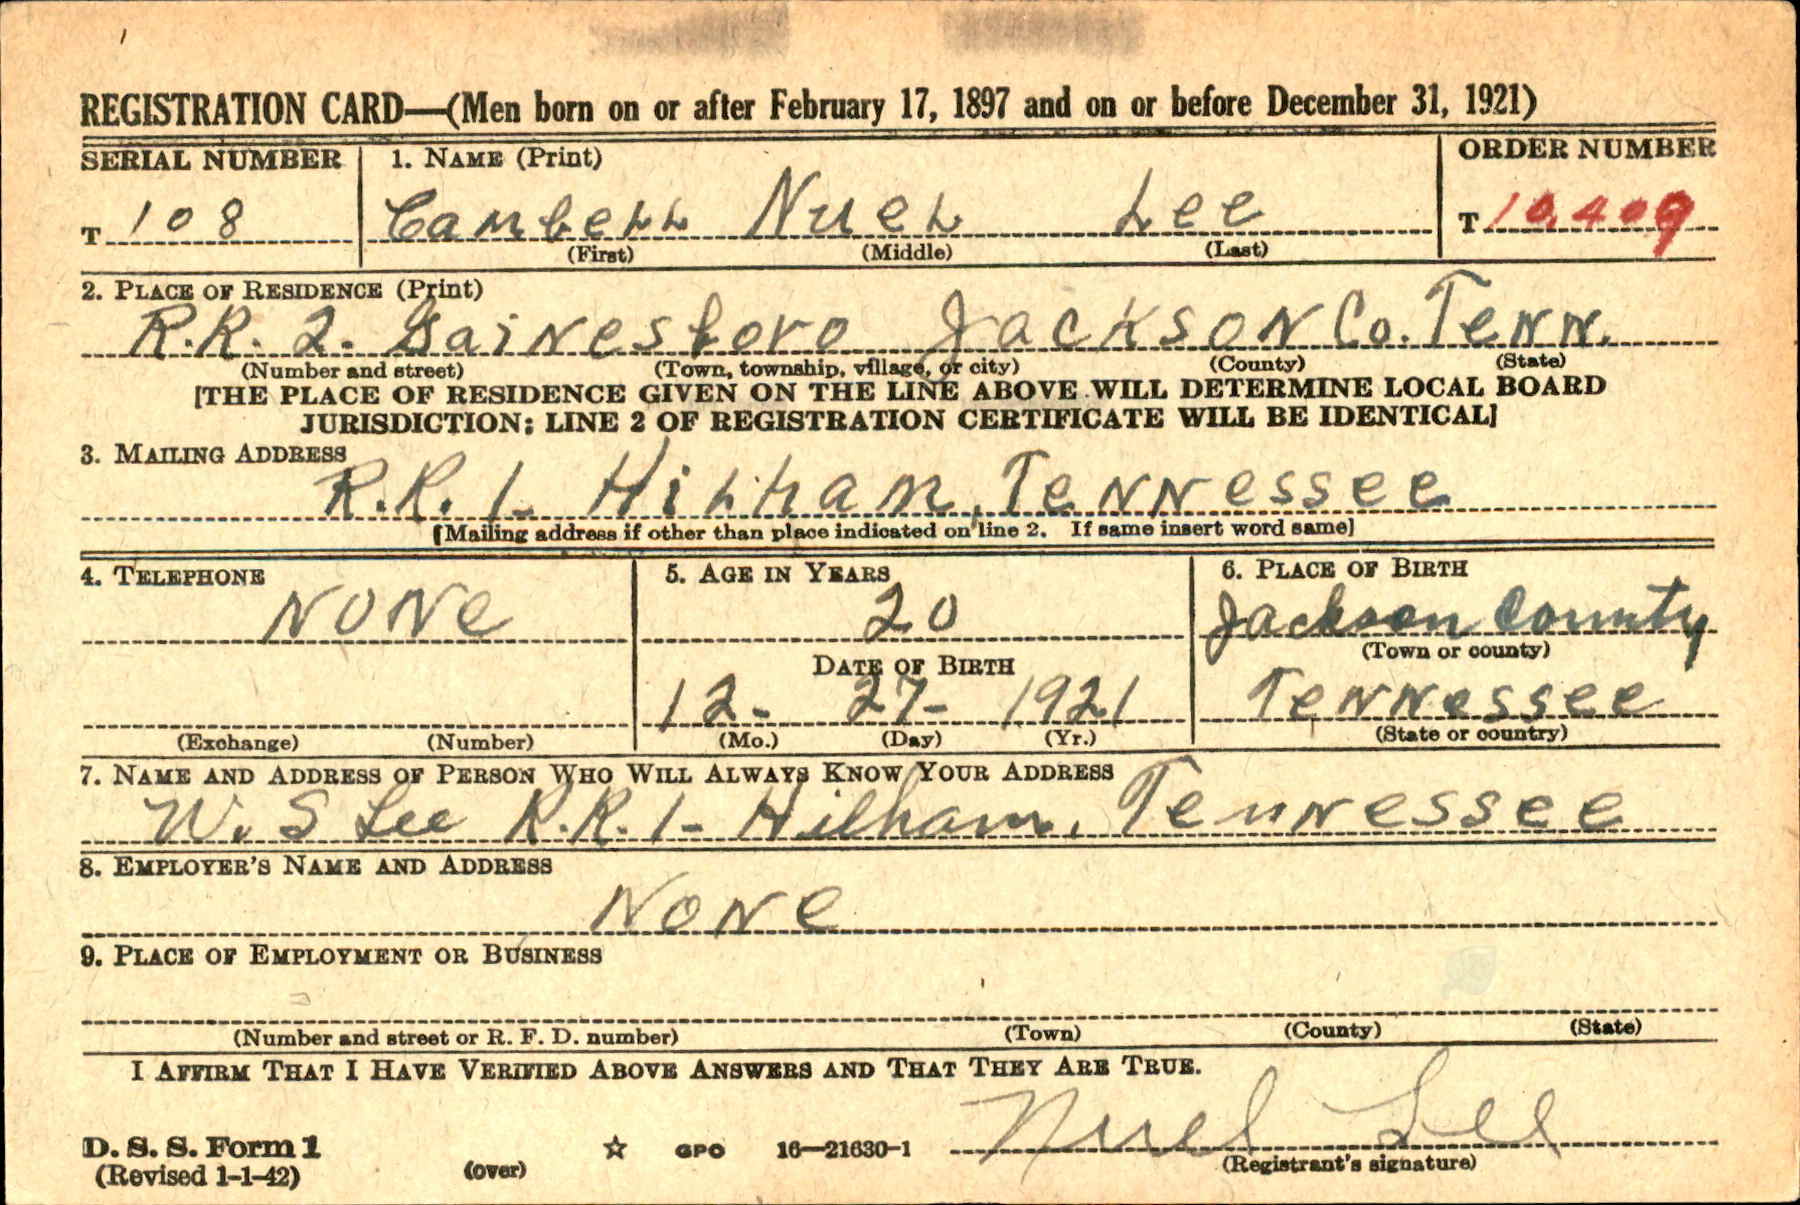 REGISTRATION CARD—(Men born on or after February 17, 1897 and on or before December 31, 1921)
SERIAL NUMBER 1. NAME (Print) ORDER NUMBER
T 108 Cambell Nuel Lee T 10,409
(First) (Middle) (Last)
2. PLACE OF RESIDENCE (Print)
R.R. 2. Gainesboro Jackson Co. Tenn.
(Number and street) (Town, township, village, or city) (County) (State)
[THE PLACE OF RESIDENCE GIVEN ON THE LINE ABOVE WILL DETERMINE LOCAL BOARD
JURISDICTION; LINE 2 OF REGISTRATION CERTIFICATE WILL BE IDENTICAL]
3. MAILING ADDRESS
R.R. 1- Hilham, Tennessee
[Mailing address if other than place indicated on line 2. If same insert word same]
4. TELEPHONE 5. AGE IN YEARS 6. PLACE OF BIRTH
None 20 Jackson County
(Town or county)
DATE OF BIRTH
12- 27- 1921 Tennessee
(Exchange) (Number) (Mo.) (Day) (Yr.) (State or country)
7. NAME AND ADDRESS OF PERSON WHO WILL ALWAYS KNOW YOUR ADDRESS
W. S Lee R.R. 1- Hilham, Tennessee
8. EMPLOYER'S NAME AND ADDRESS
None
9. PLACE OF EMPLOYMENT OR BUSINESS
(Number and street or R. F. D. number) (Town) (County) (State)
I AFFIRM THAT I HAVE VERIFIED ABOVE ANSWERS AND THAT THEY ARE TRUE.
Nuel Lee
D. S. S. Form 1 GPO 16—21630-1
(Revised 1-1-42) (over) (Registrant's signature)